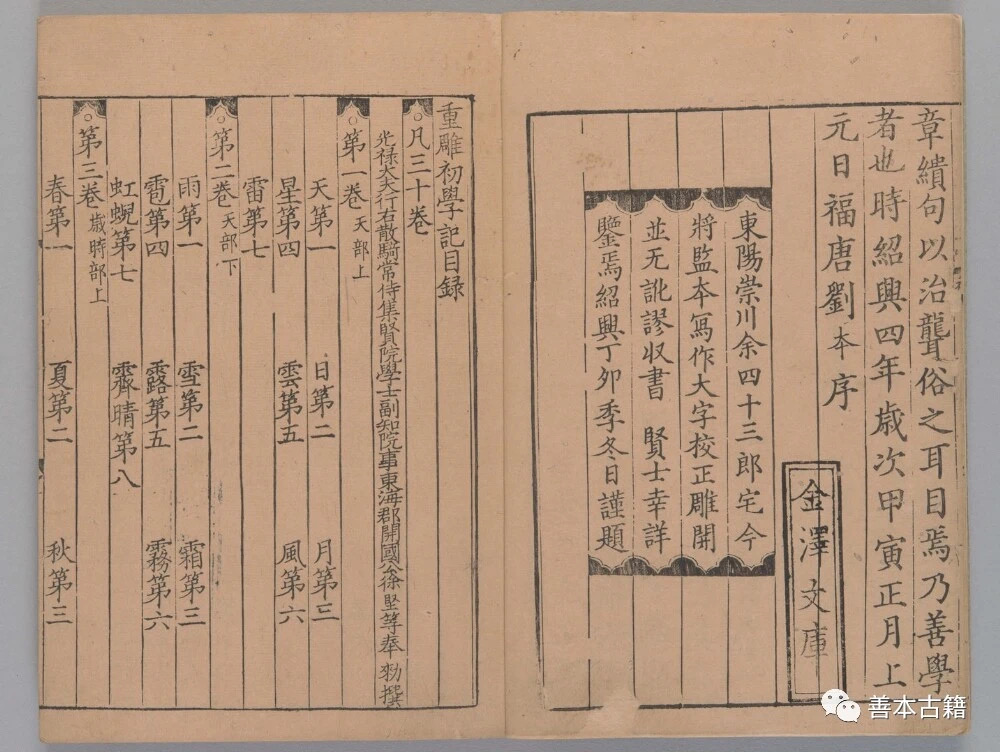 章繢句以治聾俗之耳目焉乃善學
者也時紹興四年歲次甲寅正月上
元日福唐劉本序
金澤文庫
東陽崇川余四十三郎宅今
將監本寫作大字校正雕開
並无訛謬收書 賢士幸詳
鑒焉紹興丁卯季冬日謹題
重雕初學記目録
凡三十卷
光禄大夫行右散騎常侍集賢院學士副知院事東海郡開國公徐堅等奉 勑撰
第一卷 天部上
天第一 日第二 月第三
星第四 雲第五 風第六
雷第七
第二卷 天部下
雨第一 雪第二 霜第三
雹第四 露第五 霧第六
虹蜺第七 霽晴第八
第三卷 歲時部上
春第一 夏第二 秋第三
善本古籍